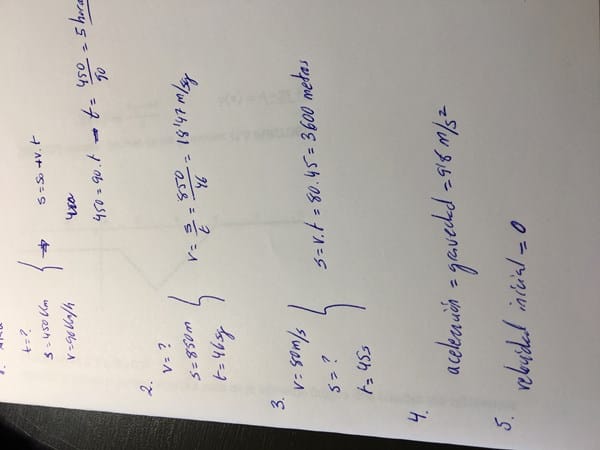 t=?
s=450 Km
v=90 Kg/h
s=so+v.t
450=90.t → t= 450/90 = 5 horas
2. v=?
s=850m
t=46sg
v= s/t = 850/46 = 18'47 m/sg
3. v=80m/s
s=?
t=45s
s=v.t=80.45=3600 metros
4. aceleración = gravedad = 9'8 m/s²
5. velocidad inicial = 0